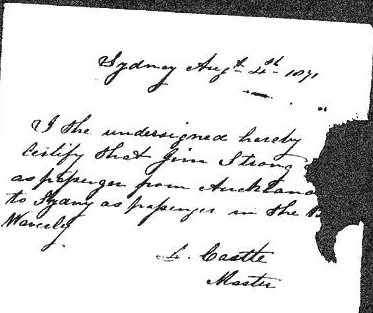 Sydney Augt 4st 1891
I the undersigned hereby
certify that Jim Strong
as passenger from Auckland
to Sydny as passenger in the B
Waverly
Castle
Master